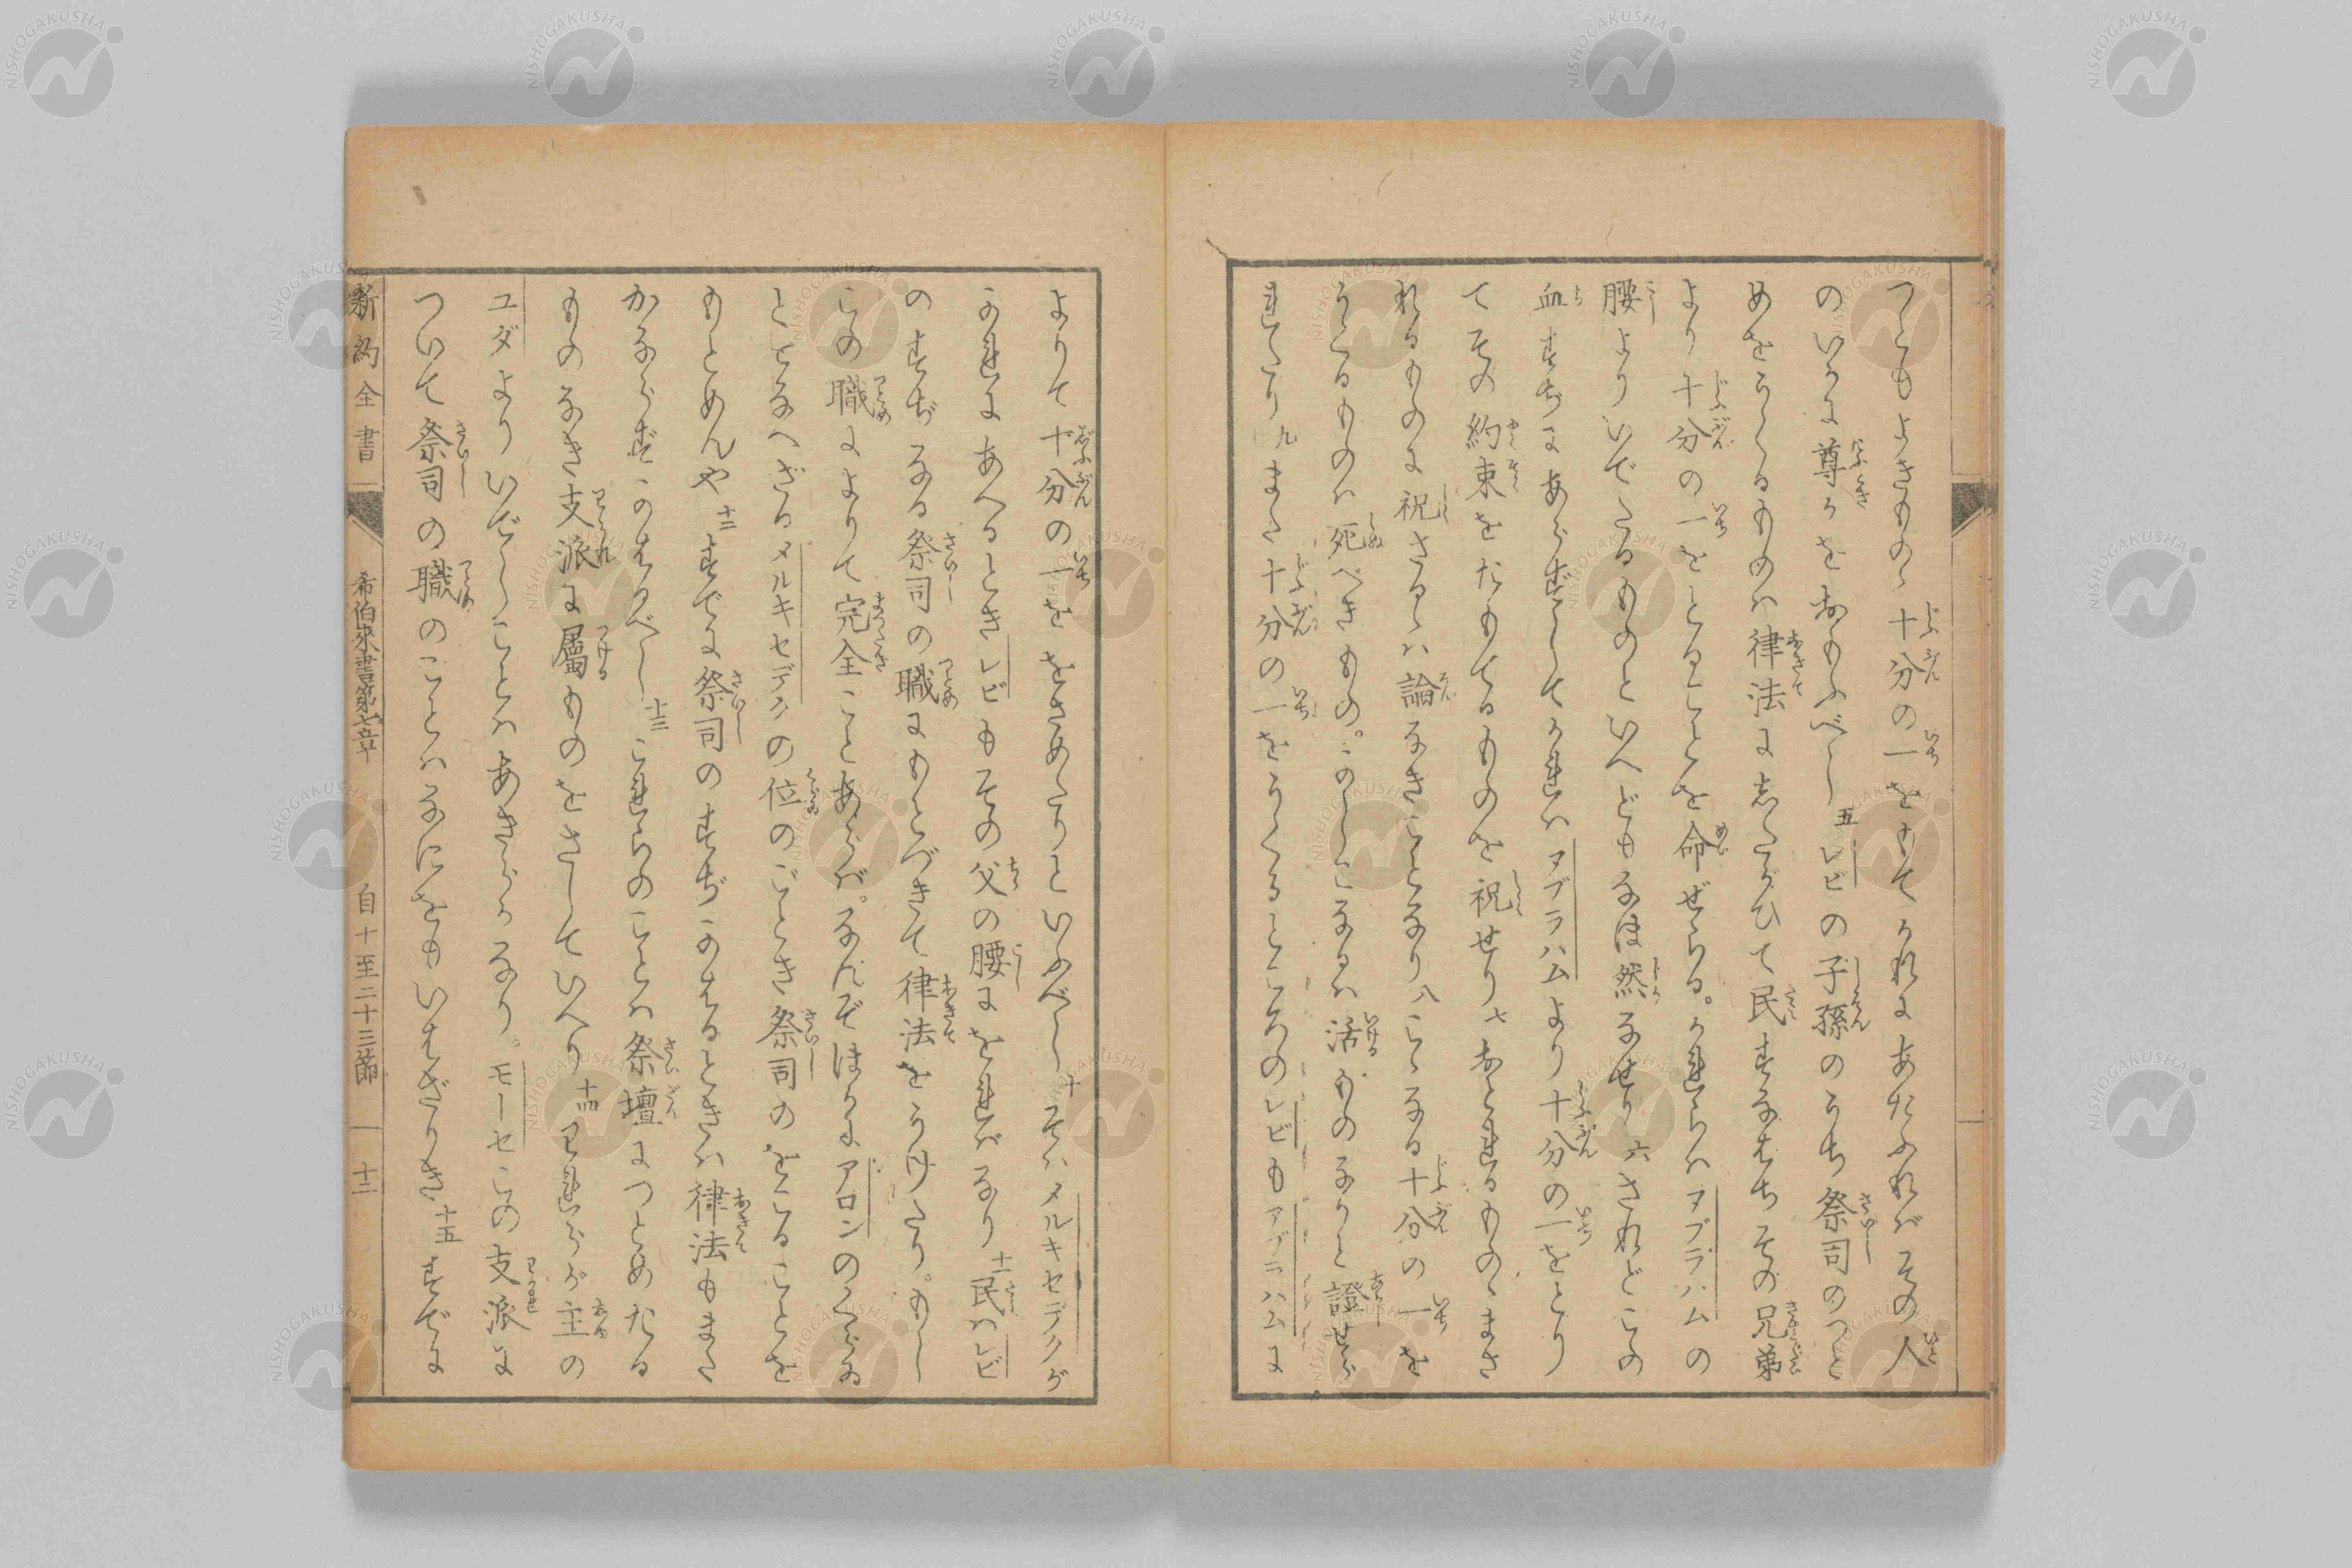 つともよきものゝ十分の一をもてかれにあたふればその人
のいかに尊かをおもふべし五レビの子孫のうち祭司のつと
めをうくるものハ律法にしたがひて民すなはちその兄弟
より十分の一をとることを命ぜらる。かれらハアブラハムの
腰よりいでたるものといへどもなほ然なせり六されどこの
血すぢにあらずしてかれハアブラハムより十分の一をとり
てその約束をたもてるものを祝せり七おとれるものゝまさ
れるものに祝さるゝハ論なきことなり八こゝなる十分の一を
うくるものハ死べきもの。かしこなるハ活ものなりと證せら
れたり九また十分の一をうくるところのレビもアブラハムに
よりて十分の一ををさめたりといふべし十そハメルキセデクが
かれにあへるときレビもその父の腰にをればなり十一民ハレビ
のすぢなる祭司の職にもとづきて律法をうけたり。もし
この職によりて完全ことあらば。なんぞほかにアロンのくらゐ
ととなへざるメルキセデクの位のごとき祭司のをこることを
もとめんや十二すでに祭司のすぢかはるときハ律法もまた
かならずかはるべし十三これらのことハ祭壇につとめたる
ものなき支派に屬ものをさしていへり十四われらが主の
ユダよりいでしことハあきらかなり。モーセこの支派に
ついて祭司の職のことハなにをもいはざりき十五すでに
新約全書 希伯來書第七章 自十至二十三節 十二